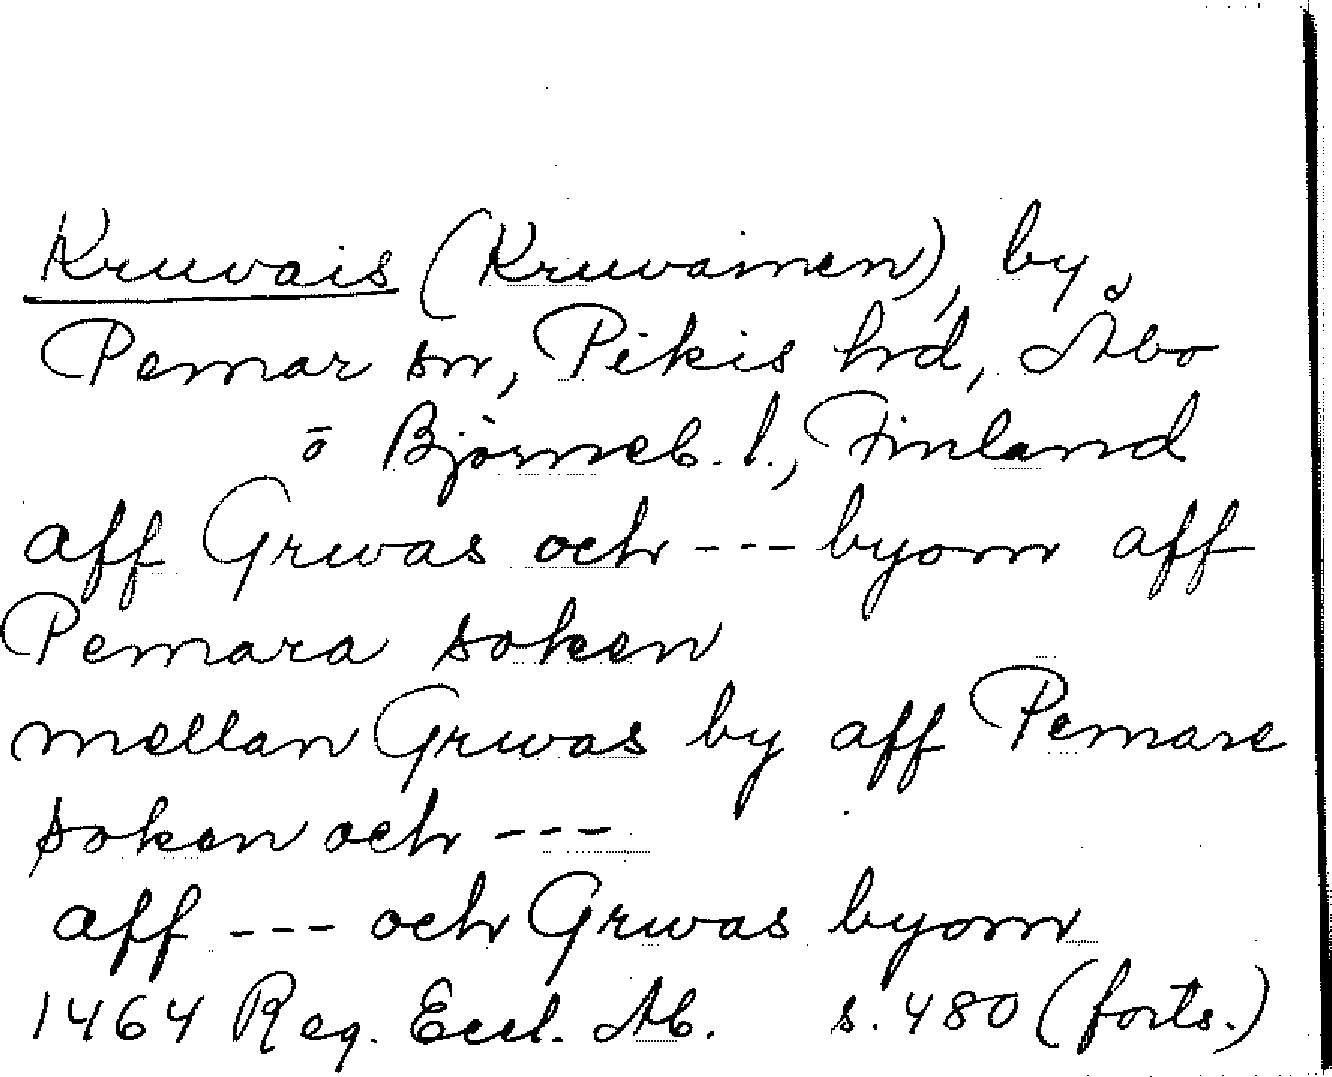 Kruvais (Kruvainen), by,
Pemar sn, Pikis hrd, Åbo
o Björneb. l., Finland
aff Grwas och --- byom aff
Pemara soken
mellan Grwas by aff Pemare
soken och ---
aff --- och Grwas byom
1464 Reg. Eccl. Ab. s. 480 (forts.)